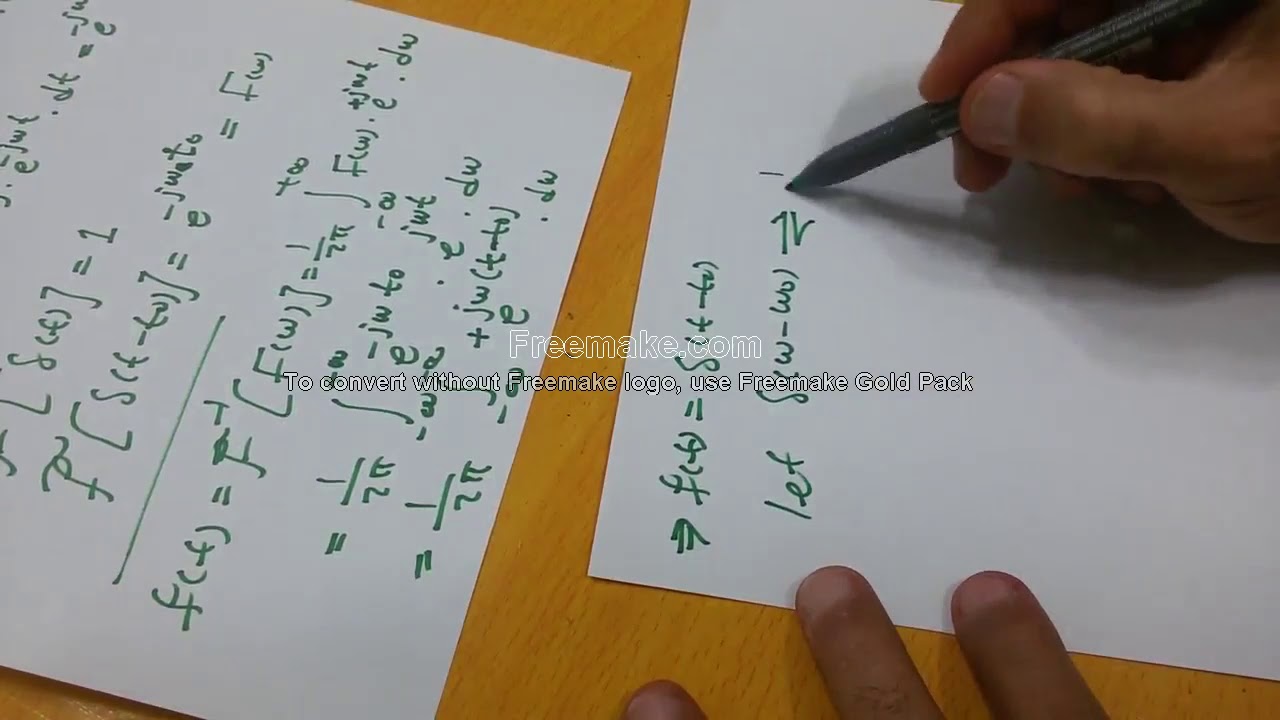 . e^-jωt . dt = e^-jω
F[δ(t)] = 1
F[δ(t-t0)] = e^-jωt0 = F(ω)
f(t) = F^-1[F(ω)] = 1/2π ∫_-∞^+∞ F(ω) . e^+jωt . dω
= 1/2π ∫_-∞^+∞ e^-jωt0 . e^jωt . dω
= 1/2π ∫_-∞^∞ e^+jω(t-t0) . dω
⇒ f(t) = δ(t-t0)
let δ(ω-ω0) ⇌ 1
Freemake.com
To convert without Freemake logo, use Freemake Gold Pack